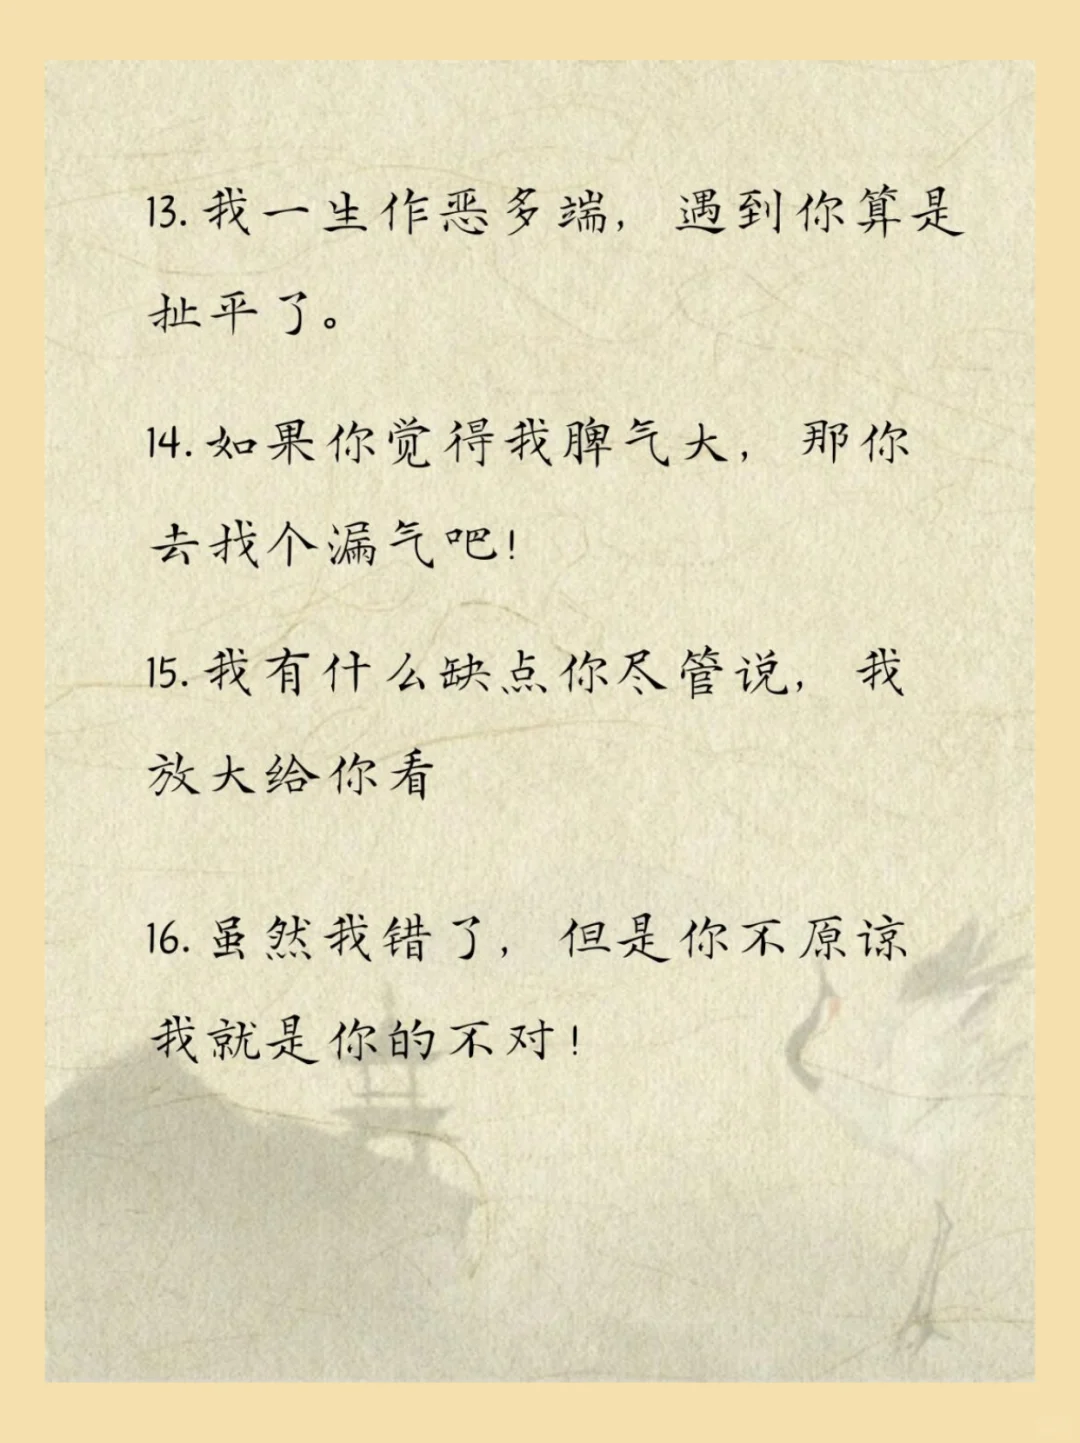 13. 我一生作恶多端，遇到你算是
扯平了。
14. 如果你觉得我脾气大，那你
去找个漏气吧！
15. 我有什么缺点你尽管说，我
放大给你看
16. 虽然我错了，但是你不原谅
我就是你的不对！